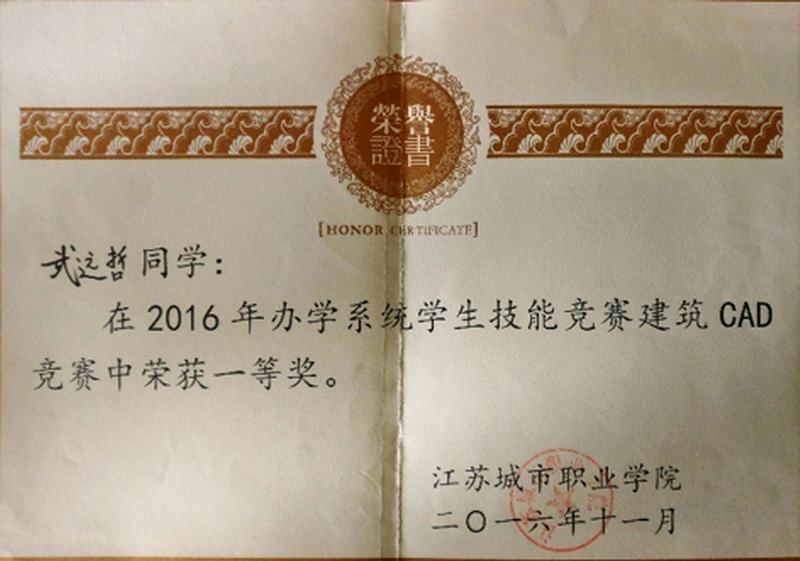 榮譽
證書
[HONOR CERTIFICATE]
武远哲同学：
在2016年办学系统学生技能竞赛建筑CAD
竞赛中荣获一等奖。
江苏城市职业学院
二〇一六年十一月